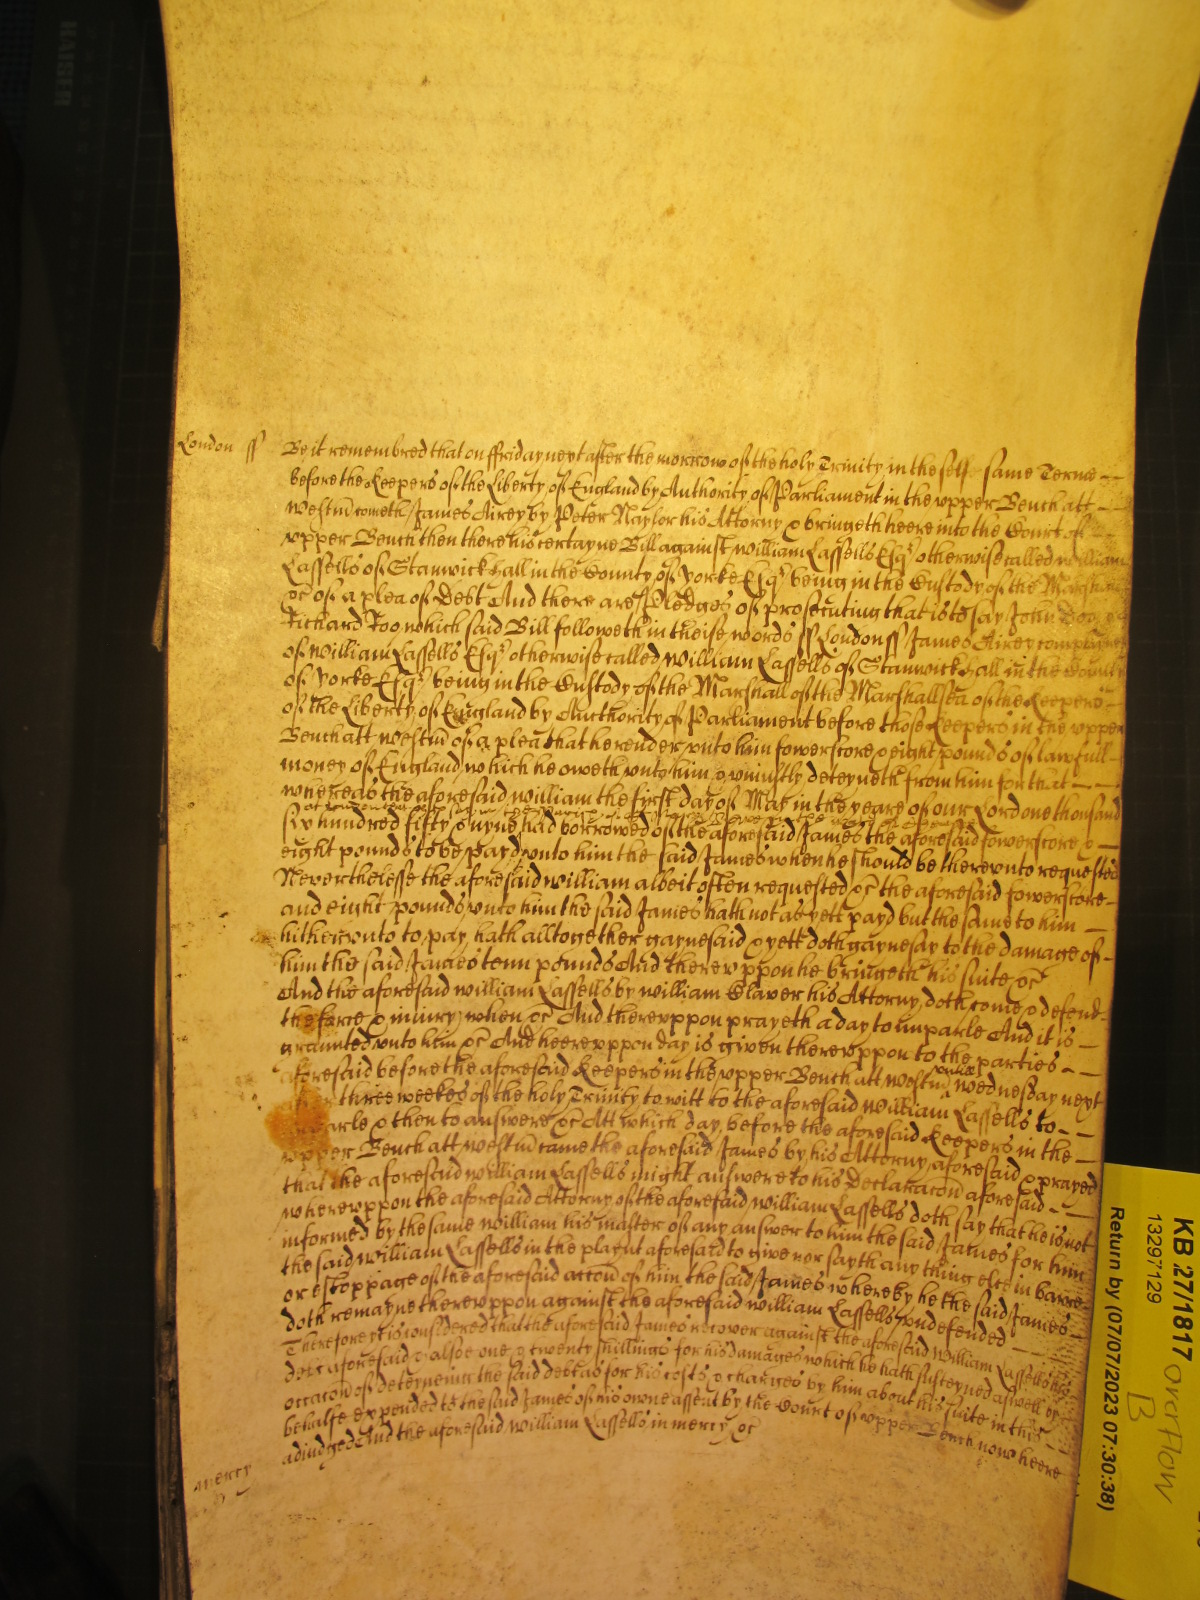 London ss Be it remembred that on ffriday next after the morrow of the holy Trinity in the self same Terme
before the Keepers of the Liberty of England by Authority of Parliament in the vpper Bench att
Westm̃ cometh James Airey by Peter Naylor his Attorny & bringeth heere into the Court of
vpper Bench then there his certayne Bill against William Lassells Esqr otherwise called William
Lassells of Stanwick hall in the County of Yorke Esqr being in the Custody of the Marshall
&c of a plea of Debt And there are Pledges of prosecuting that is to say John Doo &
Richard Roo which said Bill followeth in theise words ss London ss James Airey complayneth
of William Lassells Esqr otherwise called William Lassells of Stanwick hall in the County
of Yorke Esqr being in the Custody of the Marshall of the Marshallsea of the Keepers
of the Liberty of England by Authority of Parliament before those Keepers in the vpper
Bench att Westm̃ of a plea that he render vnto him fowerscore & eight pounds of lawfull
money of England which he oweth vnto him & vniustly deteyneth from him for that
whereas the aforesaid William the first day of May in the yeare of our Lord one thousand
six hundred fifty & nyne had borrowed of the aforesaid James the aforesaid fowerscore &
eight pounds to be payd vnto him the said James when he should be therevnto requested
Neverthelesse the aforesaid William albeit often requested &c the aforesaid fowerscore
and eight pounds vnto him the said James hath not as yett payd but the same to him
hithervnto to pay hath alltogether gaynesaid & yett doth gaynesay to the damage of
him the said James tenn pounds And therevppon he bringeth his suite &c
And the aforesaid William Lassells by William Claver his Attorny doth come & defend
the force & iniury when &c And therevppon prayeth a day to imparle And it is
graunted vnto him &c And heerevppon day is given therevppon to the parties
aforesaid before the aforesaid Keepers in the vpper Bench att Westm̃ vntill Wednesday next
after three weekes of the holy Trinity to witt to the aforesaid William Lassells to
imparle & then to answere &c Att which day before the aforesaid Keepers in the
vpper Bench att Westm̃ came the aforesaid James by his Attorny aforesaid & prayed
that the aforesaid William Lassells might answere to his Declaracon aforesaid
wherevppon the aforesaid Attorny of the aforesaid William Lassells doth say that he is not
informed by the same William his master of any answer to him the said James for him
the said William Lassells in the playnt aforesaid to give nor sayth any thing else in barre
or stoppage of the aforesaid accon of him the said James whereby he the said James
doth remayne therevppon against the aforesaid William Lassells vndefended
Therefore yt is considered that the aforesaid James recover against the aforesaid William Lassells his
debt aforesaid & alsoe one & twenty shillings for his damages which he hath susteyned aswell by
occacon of deteyneing the said debt as for his costs & charges by him about his suite in this
behalfe expended to the said James of his owne assent by the Court of vpper Bench now heere
adiudged And the aforesaid William Lassells in mercy &c
mercy
KB 27/1817
13297129
Return by (07/07/2023 07:30:38)
Overflow
B